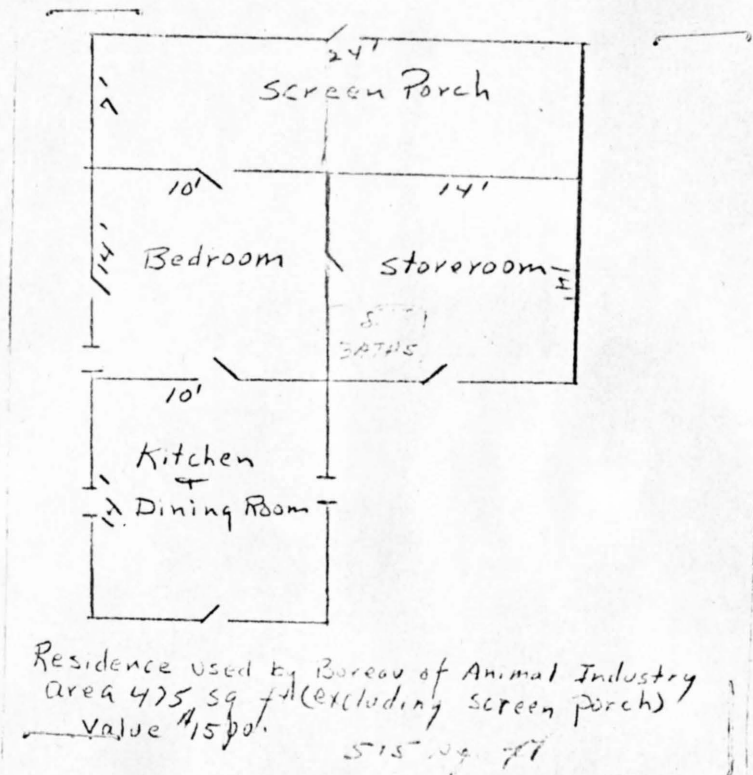 24'
Screen Porch
7'
10'
14'
14'
Bedroom
Storeroom
8
BATHS
10'
Kitchen
+
Dining Room
Residence used by Bureau of Animal Industry
area 475 sq ft (excluding screen porch)
Value $1500.
515 sq. ft